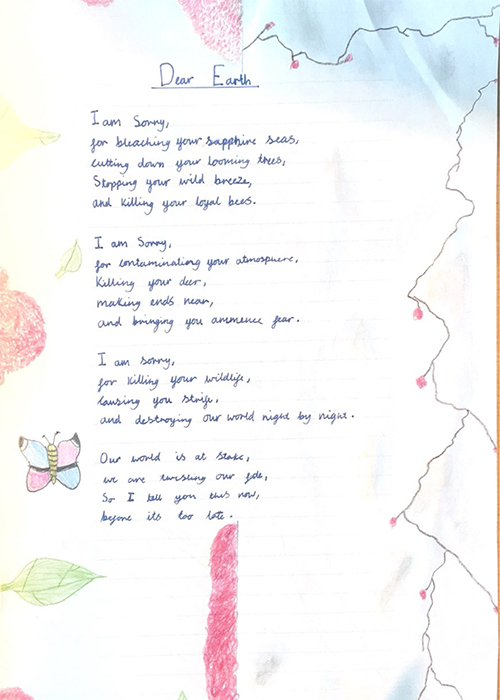 Dear Earth
I am Sorry,
for bleaching your sapphire seas,
cutting down your looming trees,
Stopping your wild breeze,
and killing your loyal bees.
I am Sorry,
for contaminationg your atmosphere,
Killing your deer,
making ends near,
and bringing you ammence fear.
I am sorry,
for killing your wildlife,
causing you strife,
and destroying our world night by night.
Our world is at stake,
we are twisting our fate,
So I tell you this now,
before its too late.